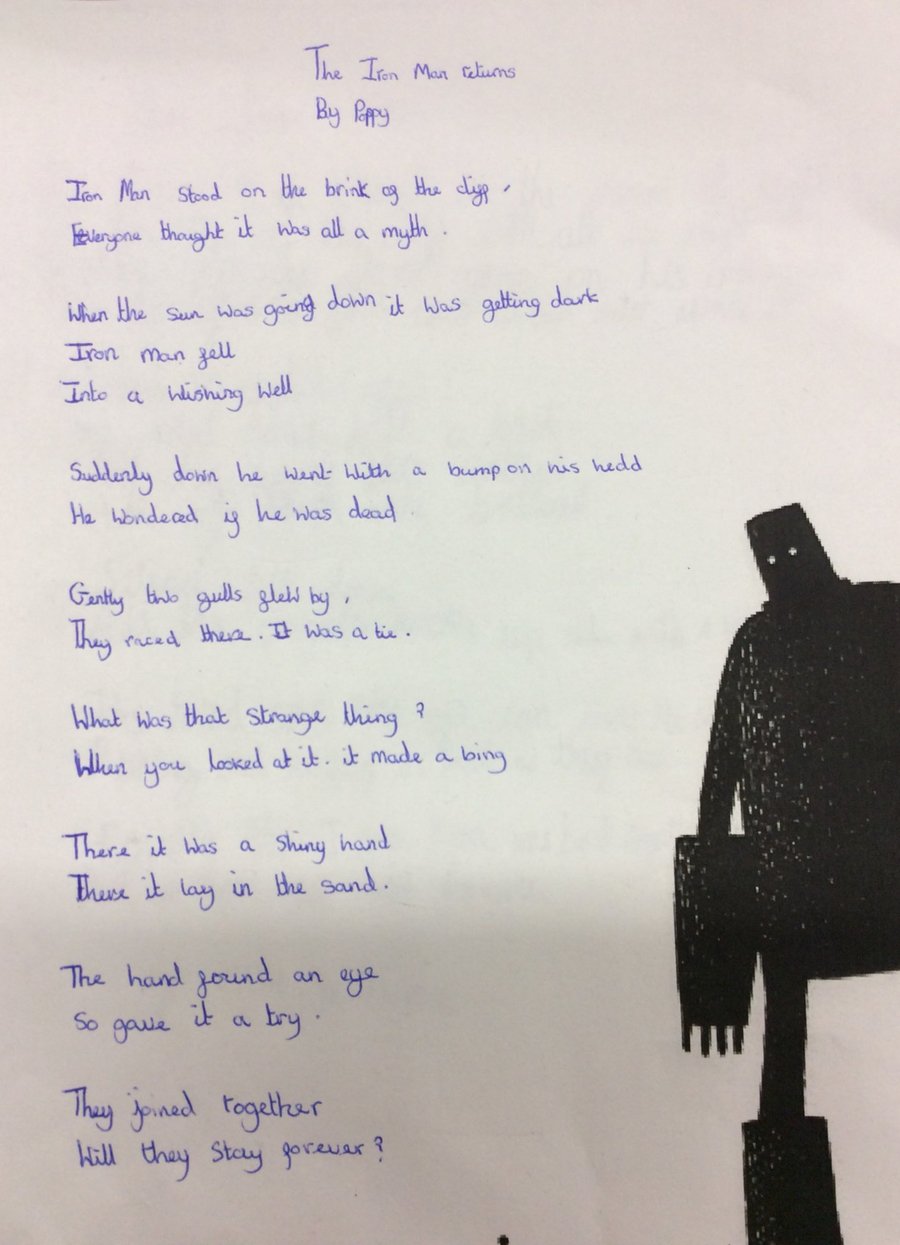 The Iron Man returns
By Poppy
Iron Man stood on the brink of the cliff,
Everyone thought it was all a myth.
When the sun was going down it was getting dark
Iron man fell
Into a wishing well
Suddenly down he went with a bump on his hedd
He wondered if he was dead
Gently two gulls flew by,
They raced there. It was a tie.
What was that strange thing?
When you looked at it. it made a bing
There it was a shiny hand
There it lay in the sand.
The hand found an eye
So gave it a try.
They joined together
Will they stay forever?